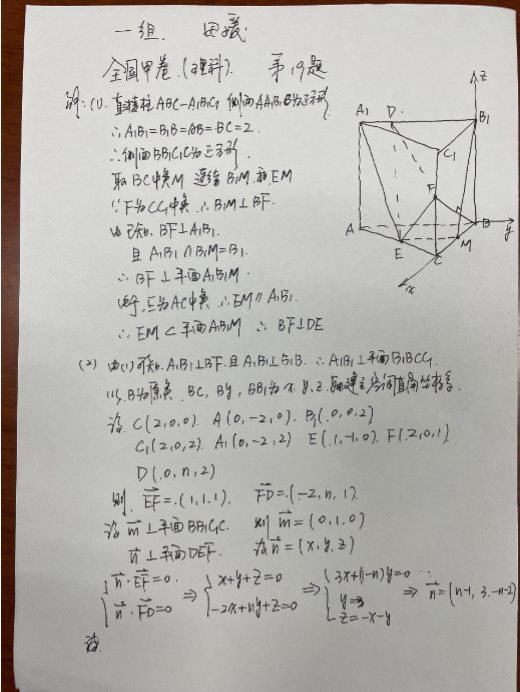 一组.
全国甲卷.(理科). 第19题
证:(1). 直棱柱ABC-A₁B₁C₁ 侧面AA₁B₁B为正方形
∴A₁B₁=B₁B=AB=BC=2.
∴侧面BB₁C₁C为正方形.
取BC中点M 连结B₁M.和EM
∵F为CC₁中点 ∴B₁M⊥BF.
由已知. BF⊥A₁B₁.
且A₁B₁∩B₁M=B₁.
∴BF⊥平面A₁B₁M.
由于.E为AC中点 ∴EM∥A₁B₁.
∴EM⊂平面A₁B₁M ∴BF⊥DE
(2) 由(1)可知.A₁B₁⊥BF.且A₁B₁⊥B₁B.∴A₁B₁⊥平面B₁BCC₁.
以B为原点.BC,By,BB₁为x.y.z.轴建立空间直角坐标系.
设.C(2,0,0). A(0,-2,0). B₁(.0,0,2).
C₁(2,0,2). A₁(0,-2,2) E(.1,-1,0). F(.2,0,1).
D(.0,n,2)
则. EF=.(1,1,1). FD=.(-2,n,1).
设m⊥平面BB₁C₁C. 则m=(0,1,0)
n⊥平面DEF. 设n=(x,y,z)
{n·EF=0. n·FD=0 ⇒ {x+y+z=0 -2x+ny+z=0 ⇒ {3x+(1-n)y=0 y=3 z=-x-y ⇒ n=(n-1,3,-n-2)
设.
A₁ D. B₁ z
C₁
F
A B y
E C M
x